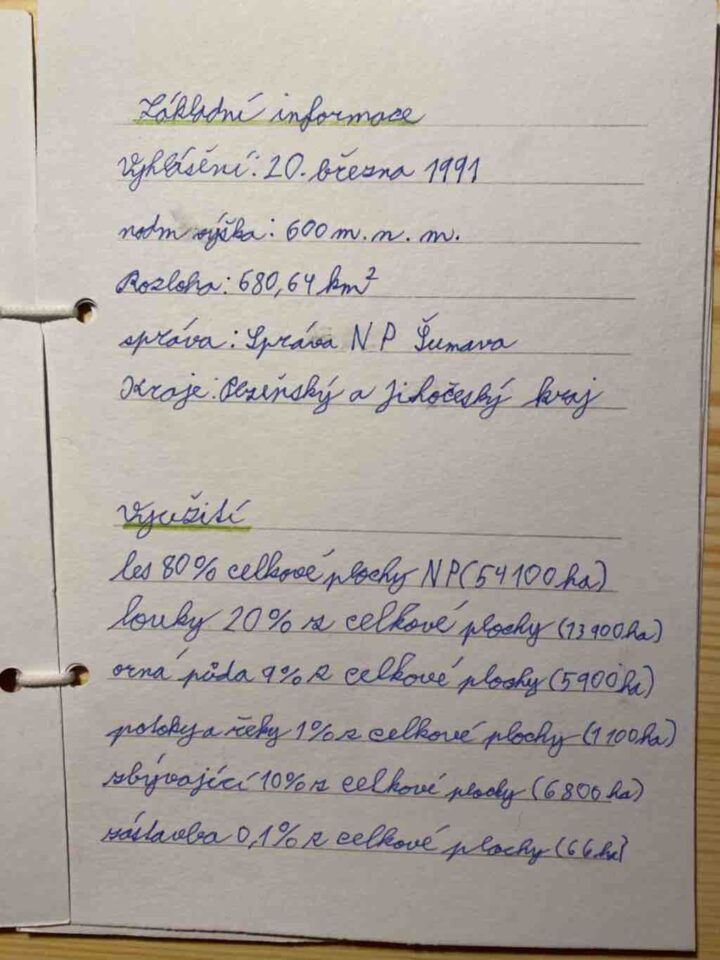 Základní informace
Vyhlášení: 20. března 1991
nadm výška: 600 m. n. m.
Rozloha: 680,64 km²
správa: Správa NP Šumava
Kraje: Plzeňský a Jihočeský kraj
Využití
les 80% celkové plochy NP (54100ha)
louky 20% z celkové plochy (13900ha)
orná půda 9% z celkové plochy (5900ha)
potoky a řeky 1% z celkové plochy (1100ha)
zbývající 10% z celkové plochy (6800ha)
zástavba 0,1% z celkové plochy (66ha)